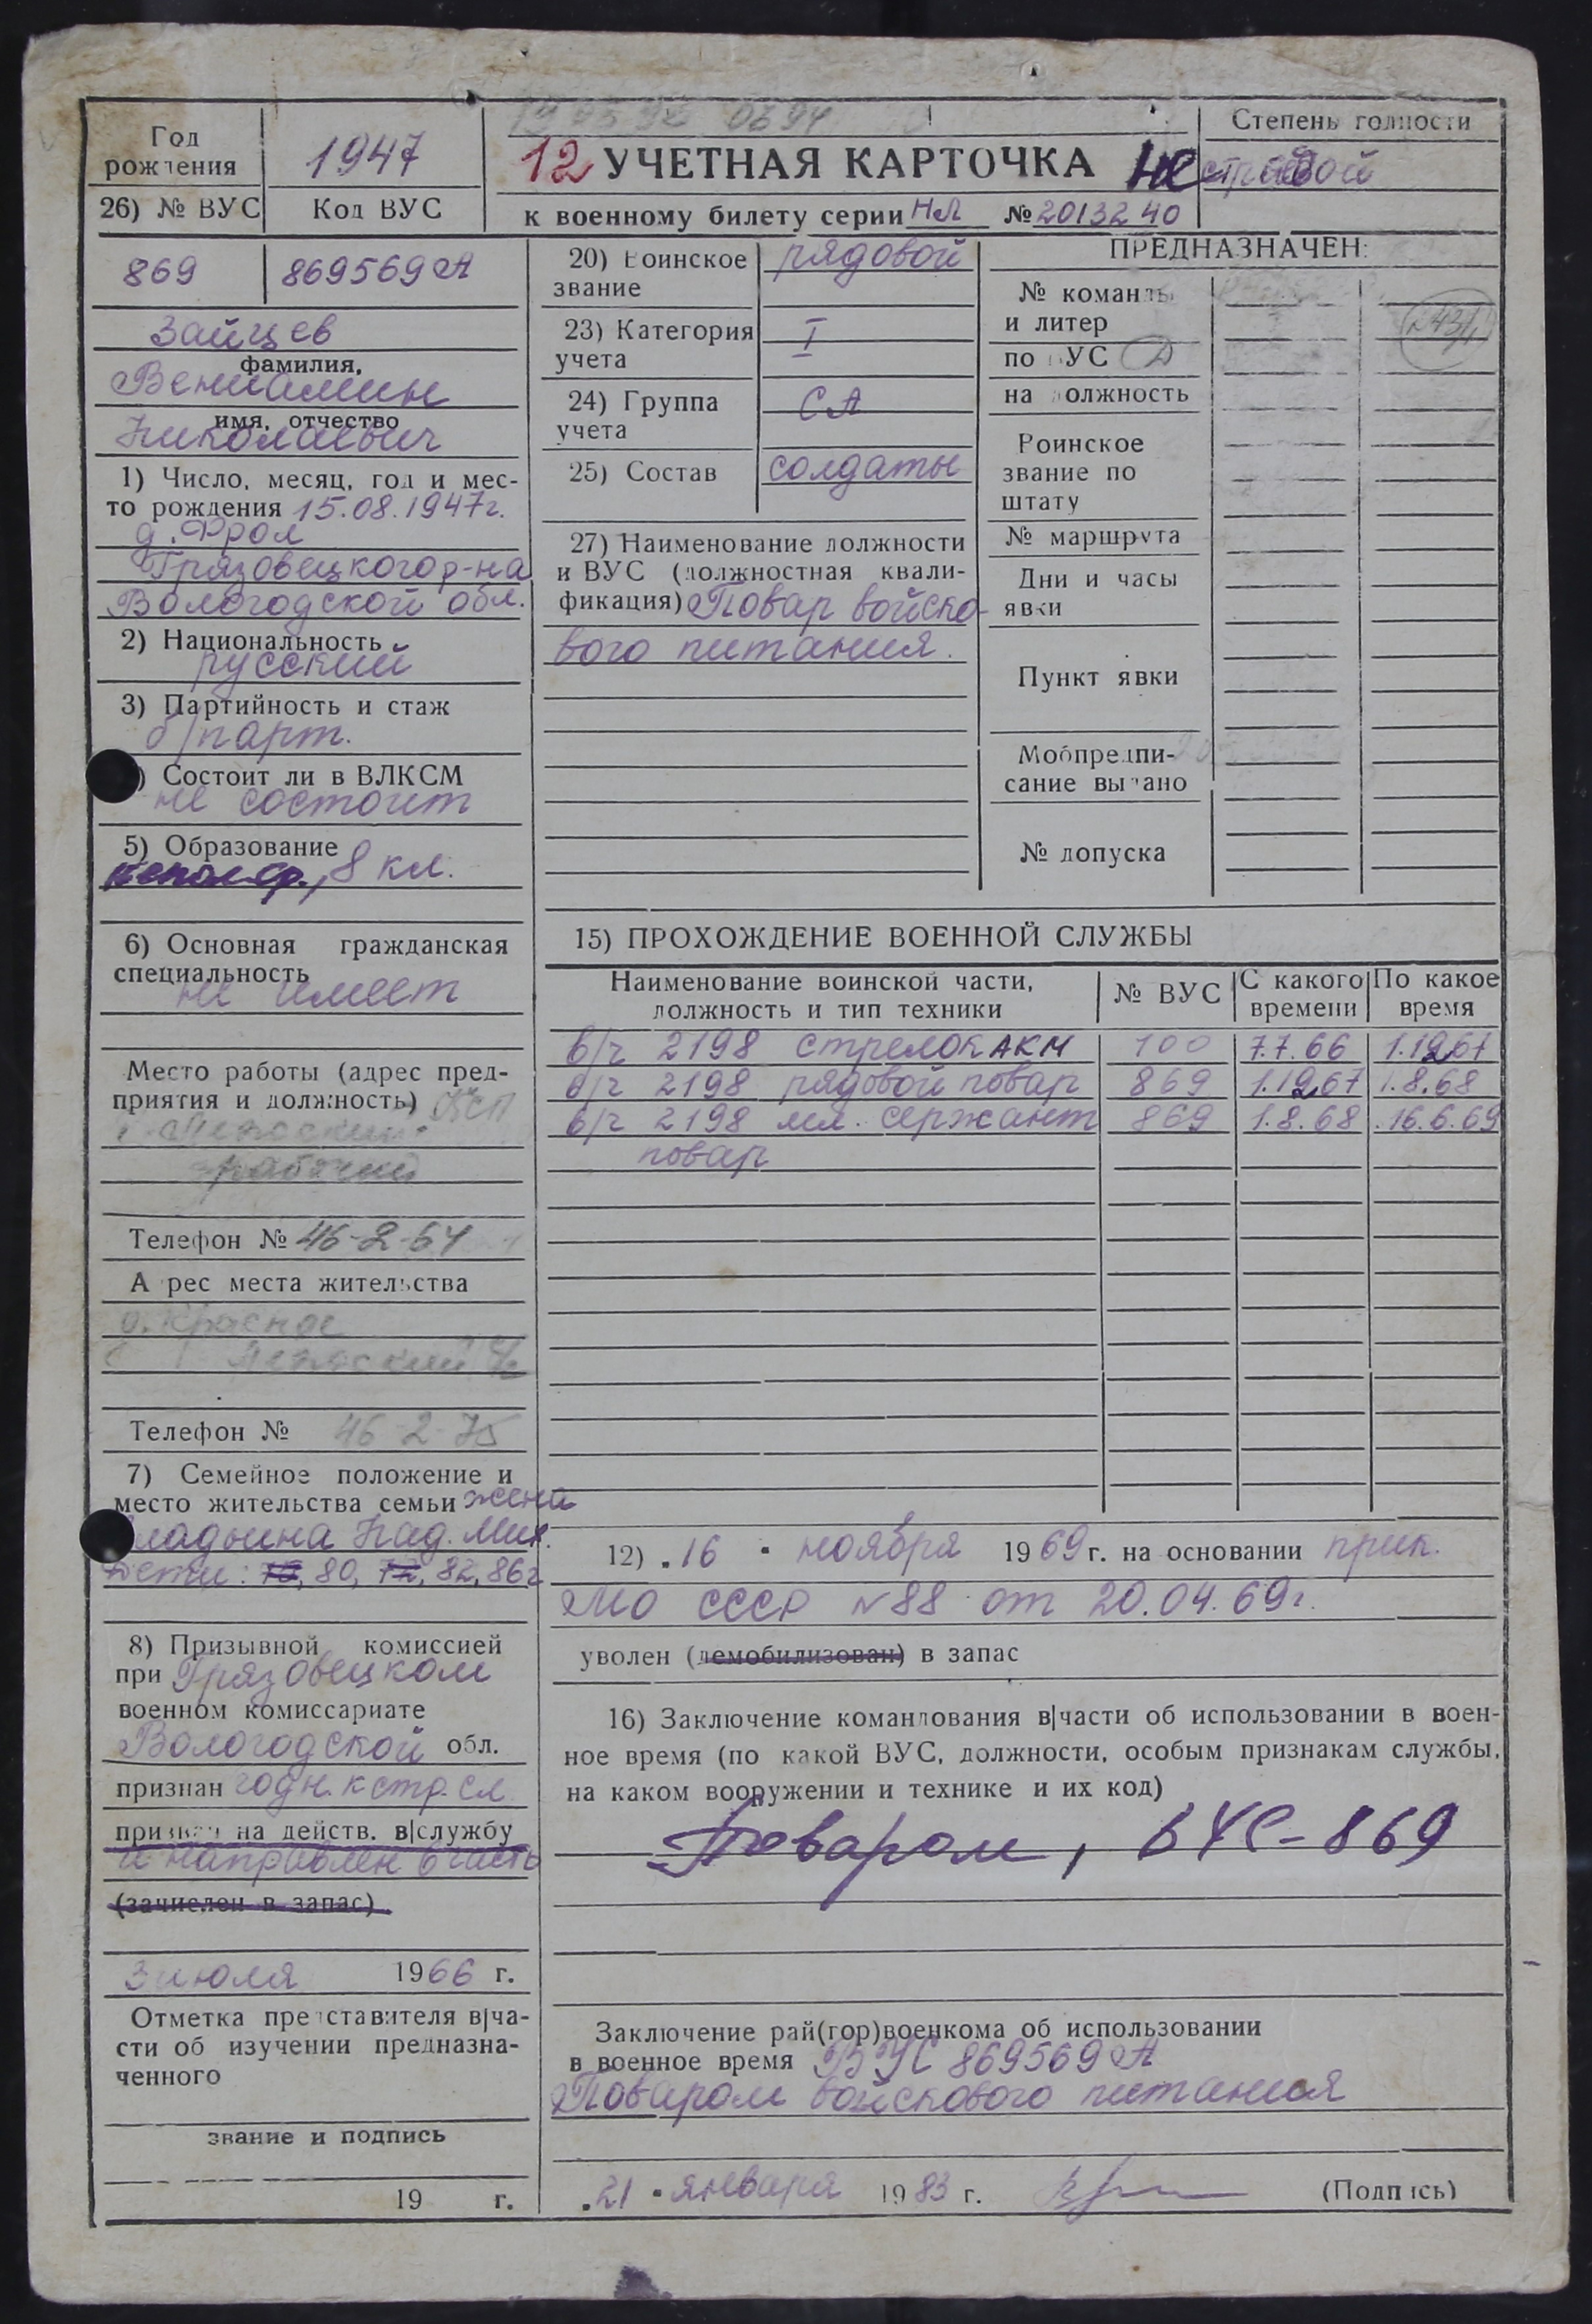 Год рождения
1947
12 УЧЕТНАЯ КАРТОЧКА
к военному билету серии НЛ № 2013240
Степень годности
не строевой
26) № ВУС
Код ВУС
869
869569 А
Зайцев
фамилия,
Вениамин
имя, отчество
Николаевич
1) Число, месяц, год и мес-
то рождения 15.08.1947г.
д. Фрол
Грязовецкого р-на
Вологодской обл.
2) Национальность
русский
3) Партийность и стаж
б/парт.
) Состоит ли в ВЛКСМ
не состоит
5) Образование
неполн ср., 8 кл.
6) Основная гражданская
специальность
не имеет
Место работы (адрес пред-
приятия и должность)
рабочий
Телефон № 46-2-64
Адрес места жительства
д. Красное
Телефон № 46-2-75
7) Семейное положение и
место жительства семьи жена
Над. Мих.
Дети: 80, 72, 82, 86г
8) Призывной комиссией
при Грязовецком
военном комиссариате
Вологодской обл.
признан годн. к стр. сл
призван на действ. в|службу
и направлен в часть
(зачислен в запас)
3 июля 1966 г.
Отметка представителя в|ча-
сти об изучении предназна-
ченного
звание и подпись
19 г.
20) Воинское звание
рядовой
23) Категория учета
I
24) Группа учета
СА
25) Состав
солдаты
27) Наименование должности
и ВУС (должностная квали-
фикация) Повар войско-
вого питания.
ПРЕДНАЗНАЧЕН:
№ команды и литер
по ВУС
на должность
Воинское звание по штату
№ маршрута
Дни и часы явки
Пункт явки
Мобпредпи-
сание выдано
№ допуска
15) ПРОХОЖДЕНИЕ ВОЕННОЙ СЛУЖБЫ
Наименование воинской части, должность и тип техники
№ ВУС
С какого времени
По какое время
в/ч 2198 стрелок АКМ 100 7.7.66 1.12.67
в/ч 2198 рядовой повар 869 1.12.67 1.8.68
в/ч 2198 мл. сержант 869 1.8.68 16.6.69
повар
12) 16 ноября 1969 г. на основании прик.
МО СССР №88 от 20.04.69г.
уволен (демобилизован) в запас
16) Заключение командования в|части об использовании в воен-
ное время (по какой ВУС, должности, особым признакам службы,
на каком вооружении и технике и их код)
Поваром, ВУС-869
Заключение рай(гор)военкома об использовании
в военное время ВУС 869569 А
Поваром войскового питания
21 января 1983 г. (Подпись)